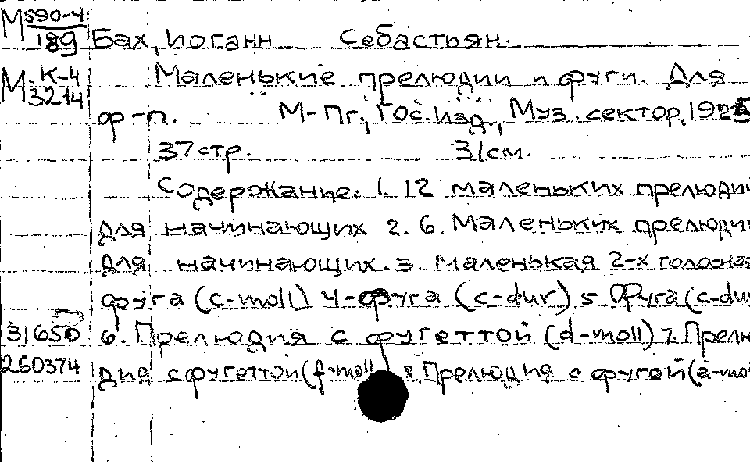 М 590-4
189 Бах, Иоганн Себастьян.
М К-4
3214 Маленькие прелюдии и фуги. Для
ф-п. М-Пг, Гос. Изд., Муз. сектор, 1925
37 стр. 31 см.
Содержание: 1. 12 маленьких прелюди
для начинающих 2. 6. Маленьких прелюди
для начинающих. 3. Маленькая 2-х
фуга (c-moll) 4-фуга (c-dur) 5 Фуга (c-du
31650 6. Прелюдия с фугеттой (d-moll) 7. Прелю
260374 дия с фугеттой (f-moll 8 Прелюдия с фугой (a-mo